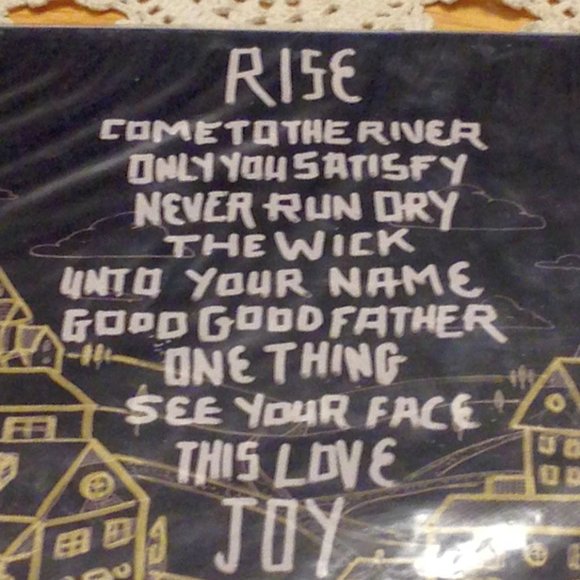 RISE
COME TO THE RIVER
ONLY YOU SATISFY
NEVER RUN DRY
THE WICK
UNTO YOUR NAME
GOOD GOOD FATHER
ONE THING
SEE YOUR FACE
THIS LOVE
JOY